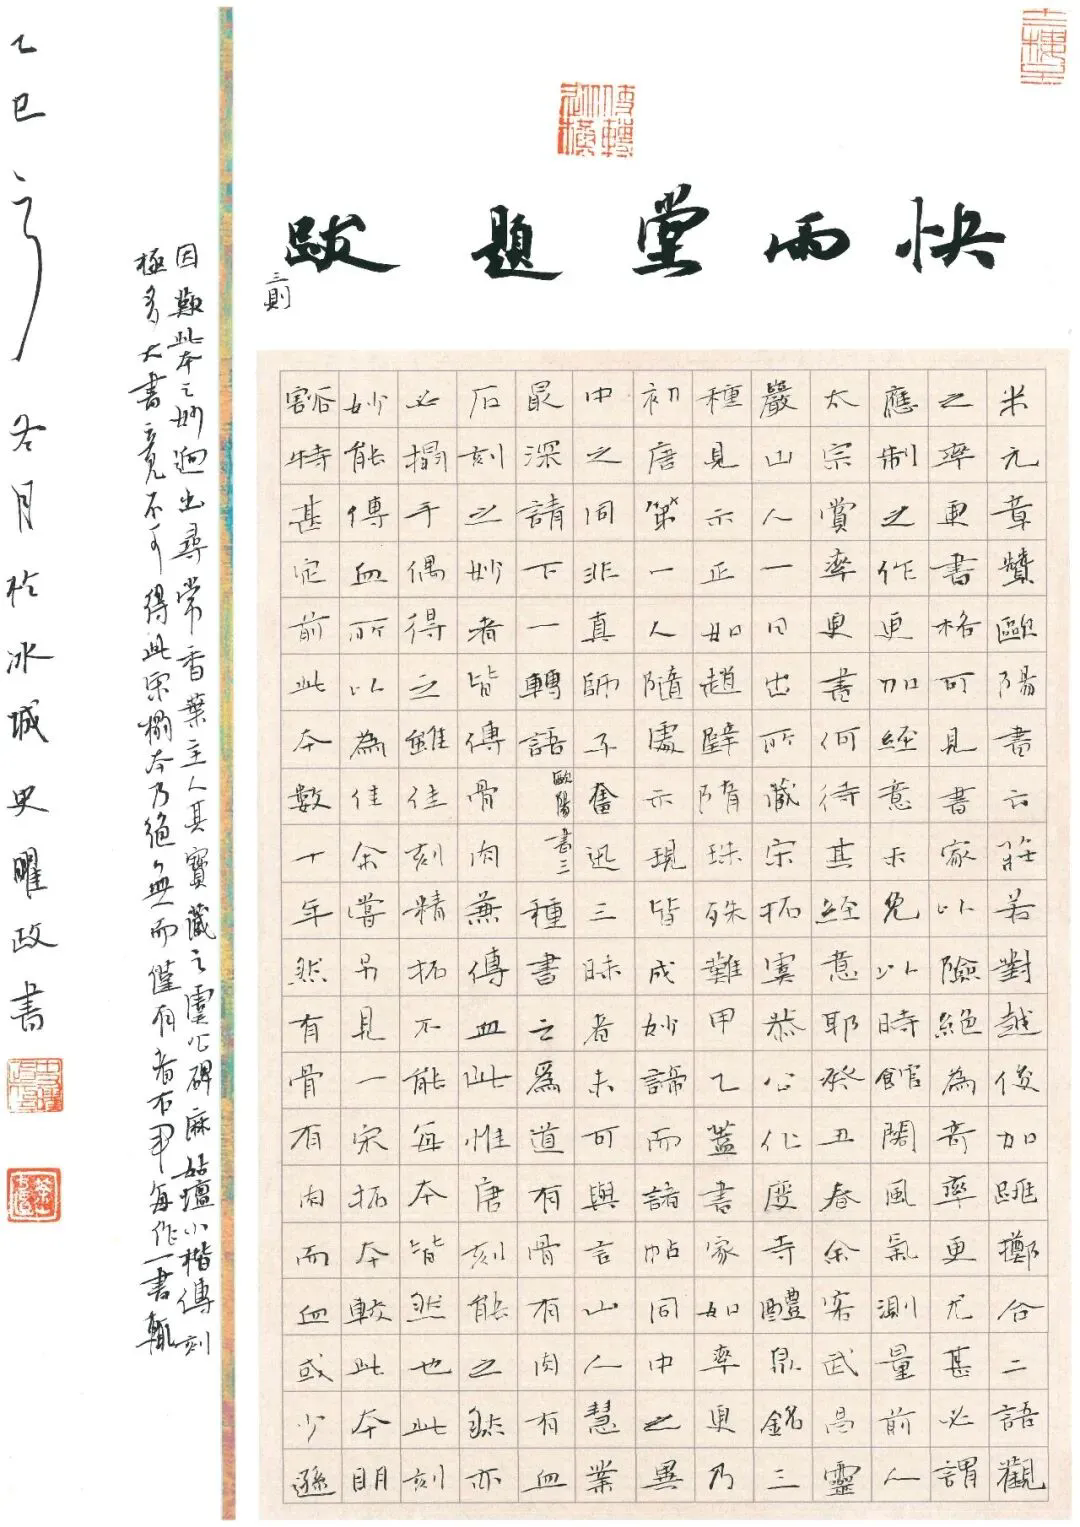 快雨堂題跋
三則
米元章贊歐陽書云莊若對越俊加跳擲合二語觀
之率更書格可見書家以險絕為奇率更尤甚必謂
應制之作更加經意未免以時館閣風氣測量前人
太宗賞率更書何待其經意耶癸丑春余客武昌靈
嚴山人一日出所藏宋拓虞恭公化度寺醴泉銘三
種見示正如趙璧隋珠殊難甲乙蓋書家如率更乃
初唐第一人隨處示現皆成妙諦而諸帖同中之異
中之同非真師子奮迅三昧者未可與言山人慧業
最深請下一轉語歐陽書三種書之爲道有骨有肉有血
石刻之妙者皆傳骨肉兼傳血此惟唐刻能之然亦
必搨手偶得之雖佳刻精拓不能每本皆然也此刻
妙能傳血所以為佳余嘗另見一宋拓本較此本明
豁特甚定前此本數十年然有骨有肉而血或少遜
因歎此本之妙迥出尋常香葉主人其寶藏之虞公碑麻姑壇小楷傳刻
極多大書竟不可得此宋搨本乃絕無而僅有者每作一書輒
乙巳年冬月於冰城史曜政書